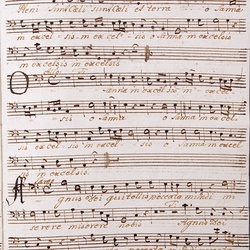 Pleni sunt Coeli sunt Coeli et terra o sanna
in excelsis in excelsis o sanna in excelsis
in excelsis in excelsis
Osanna in excelsis in
excelsis in excelsis
sis o sanna o sanna in excel
sis in excelsis o sanna in excel
sis
Agnus Dei qui tollis peccata mundi mi
serere miserere nobis Agnus Dei